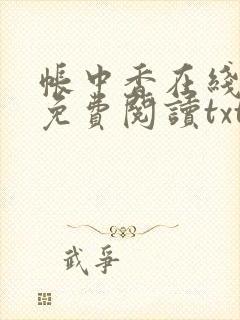 帳中香在綫
免費閱讀txt
武爭